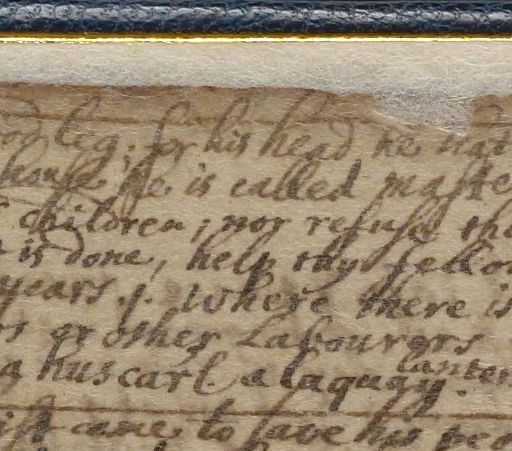 leg; for his head he
house he is called maste
children; nor refuse the
is done, help thy fellow
years. J. Where there is
or other Labourers
a huscarl. a laquay. lanter
came to save his peo